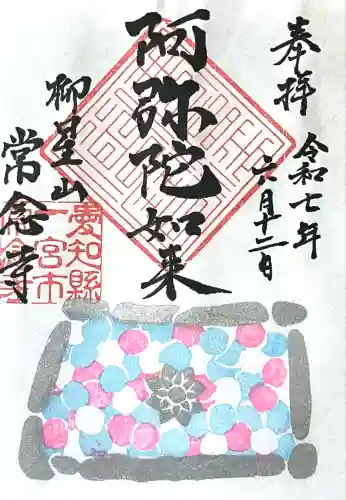 奉拝
令和七年
六月十二日
阿弥陀如来
柳星山
常念寺
愛知縣
一宮市